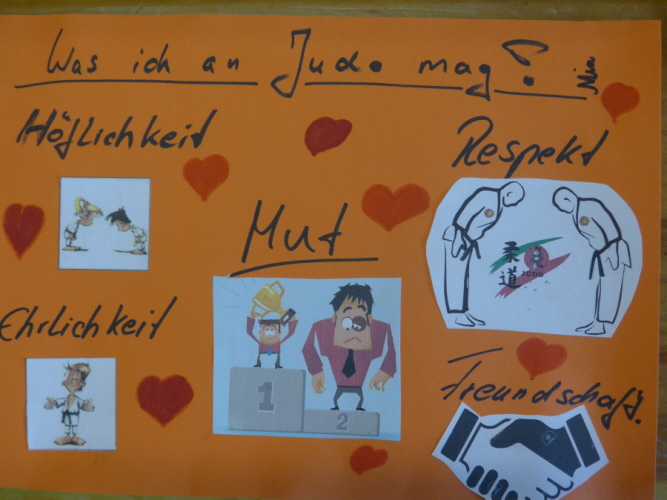 Was ich an Judo mag?
Nia
Höflichkeit
Respekt
Mut
柔道
JUDO
Ehrlichkeit
1
2
Freundschaft.